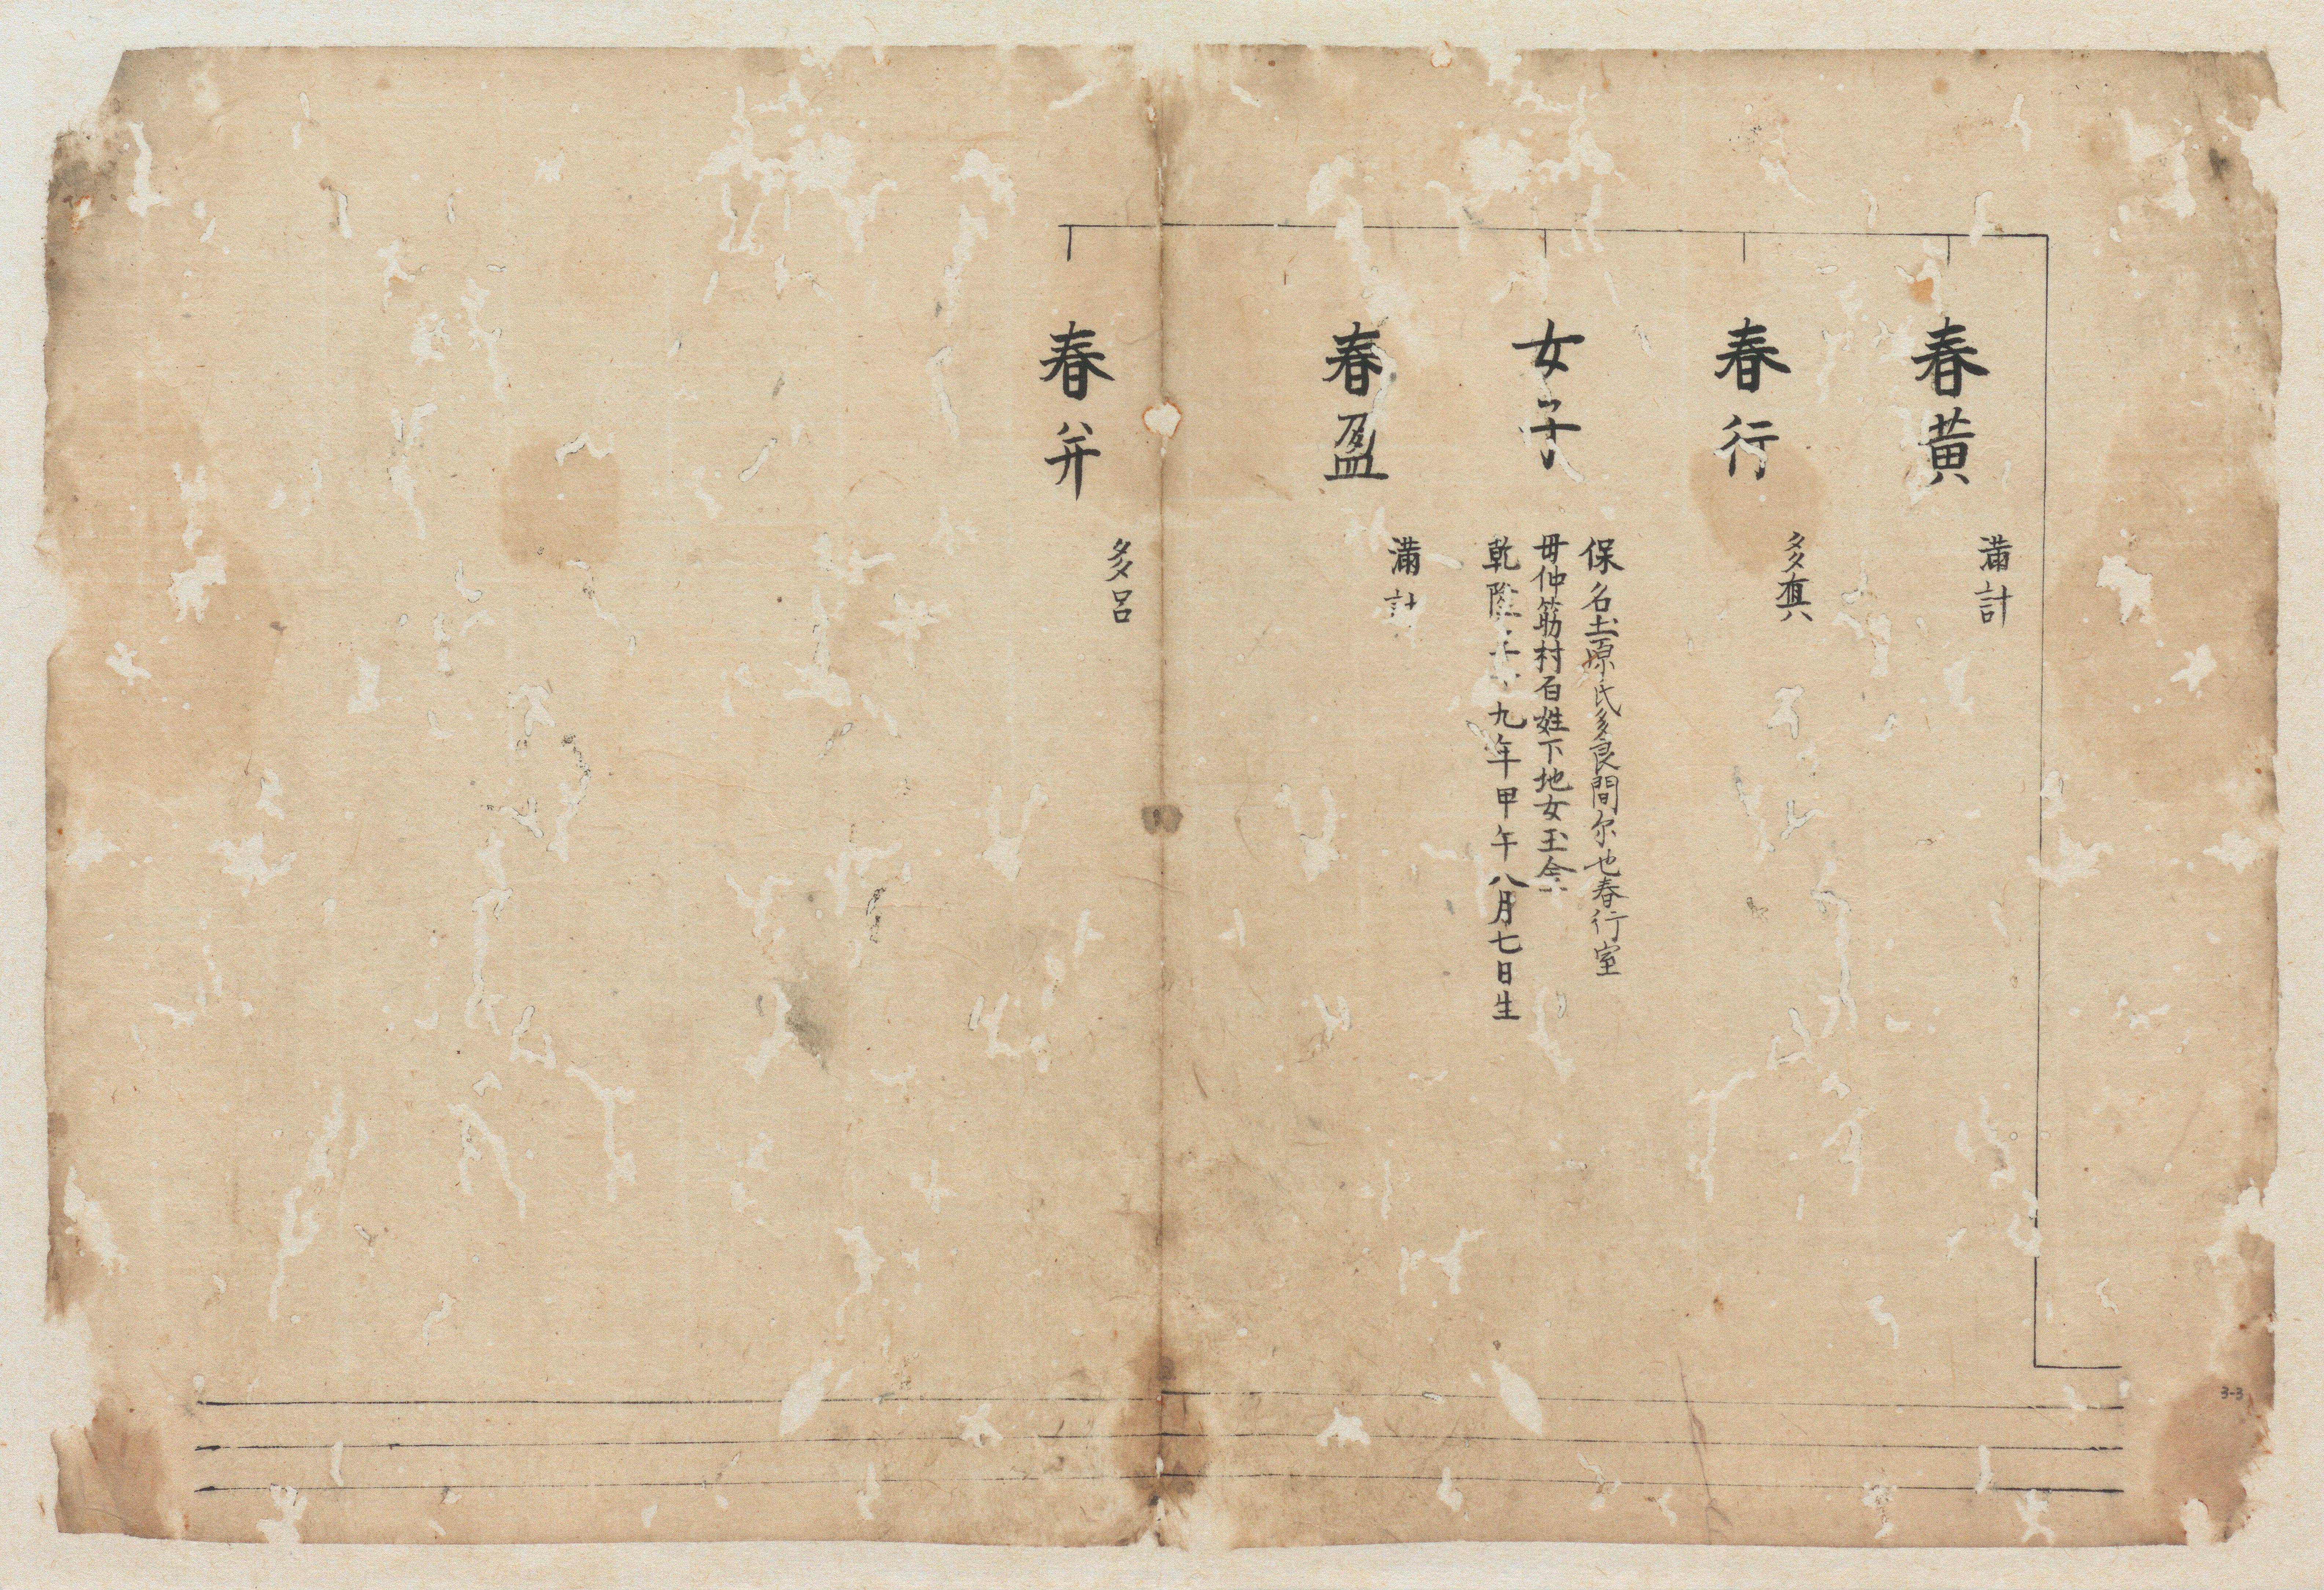 春黃
滿計
春行
多真
女子
保名土原氏多良間尓也春行室
毋仲筋村百姓下地女玉金
乾隆三十九年甲午八月七日生
春盈
滿計
春并
多呂
3-3